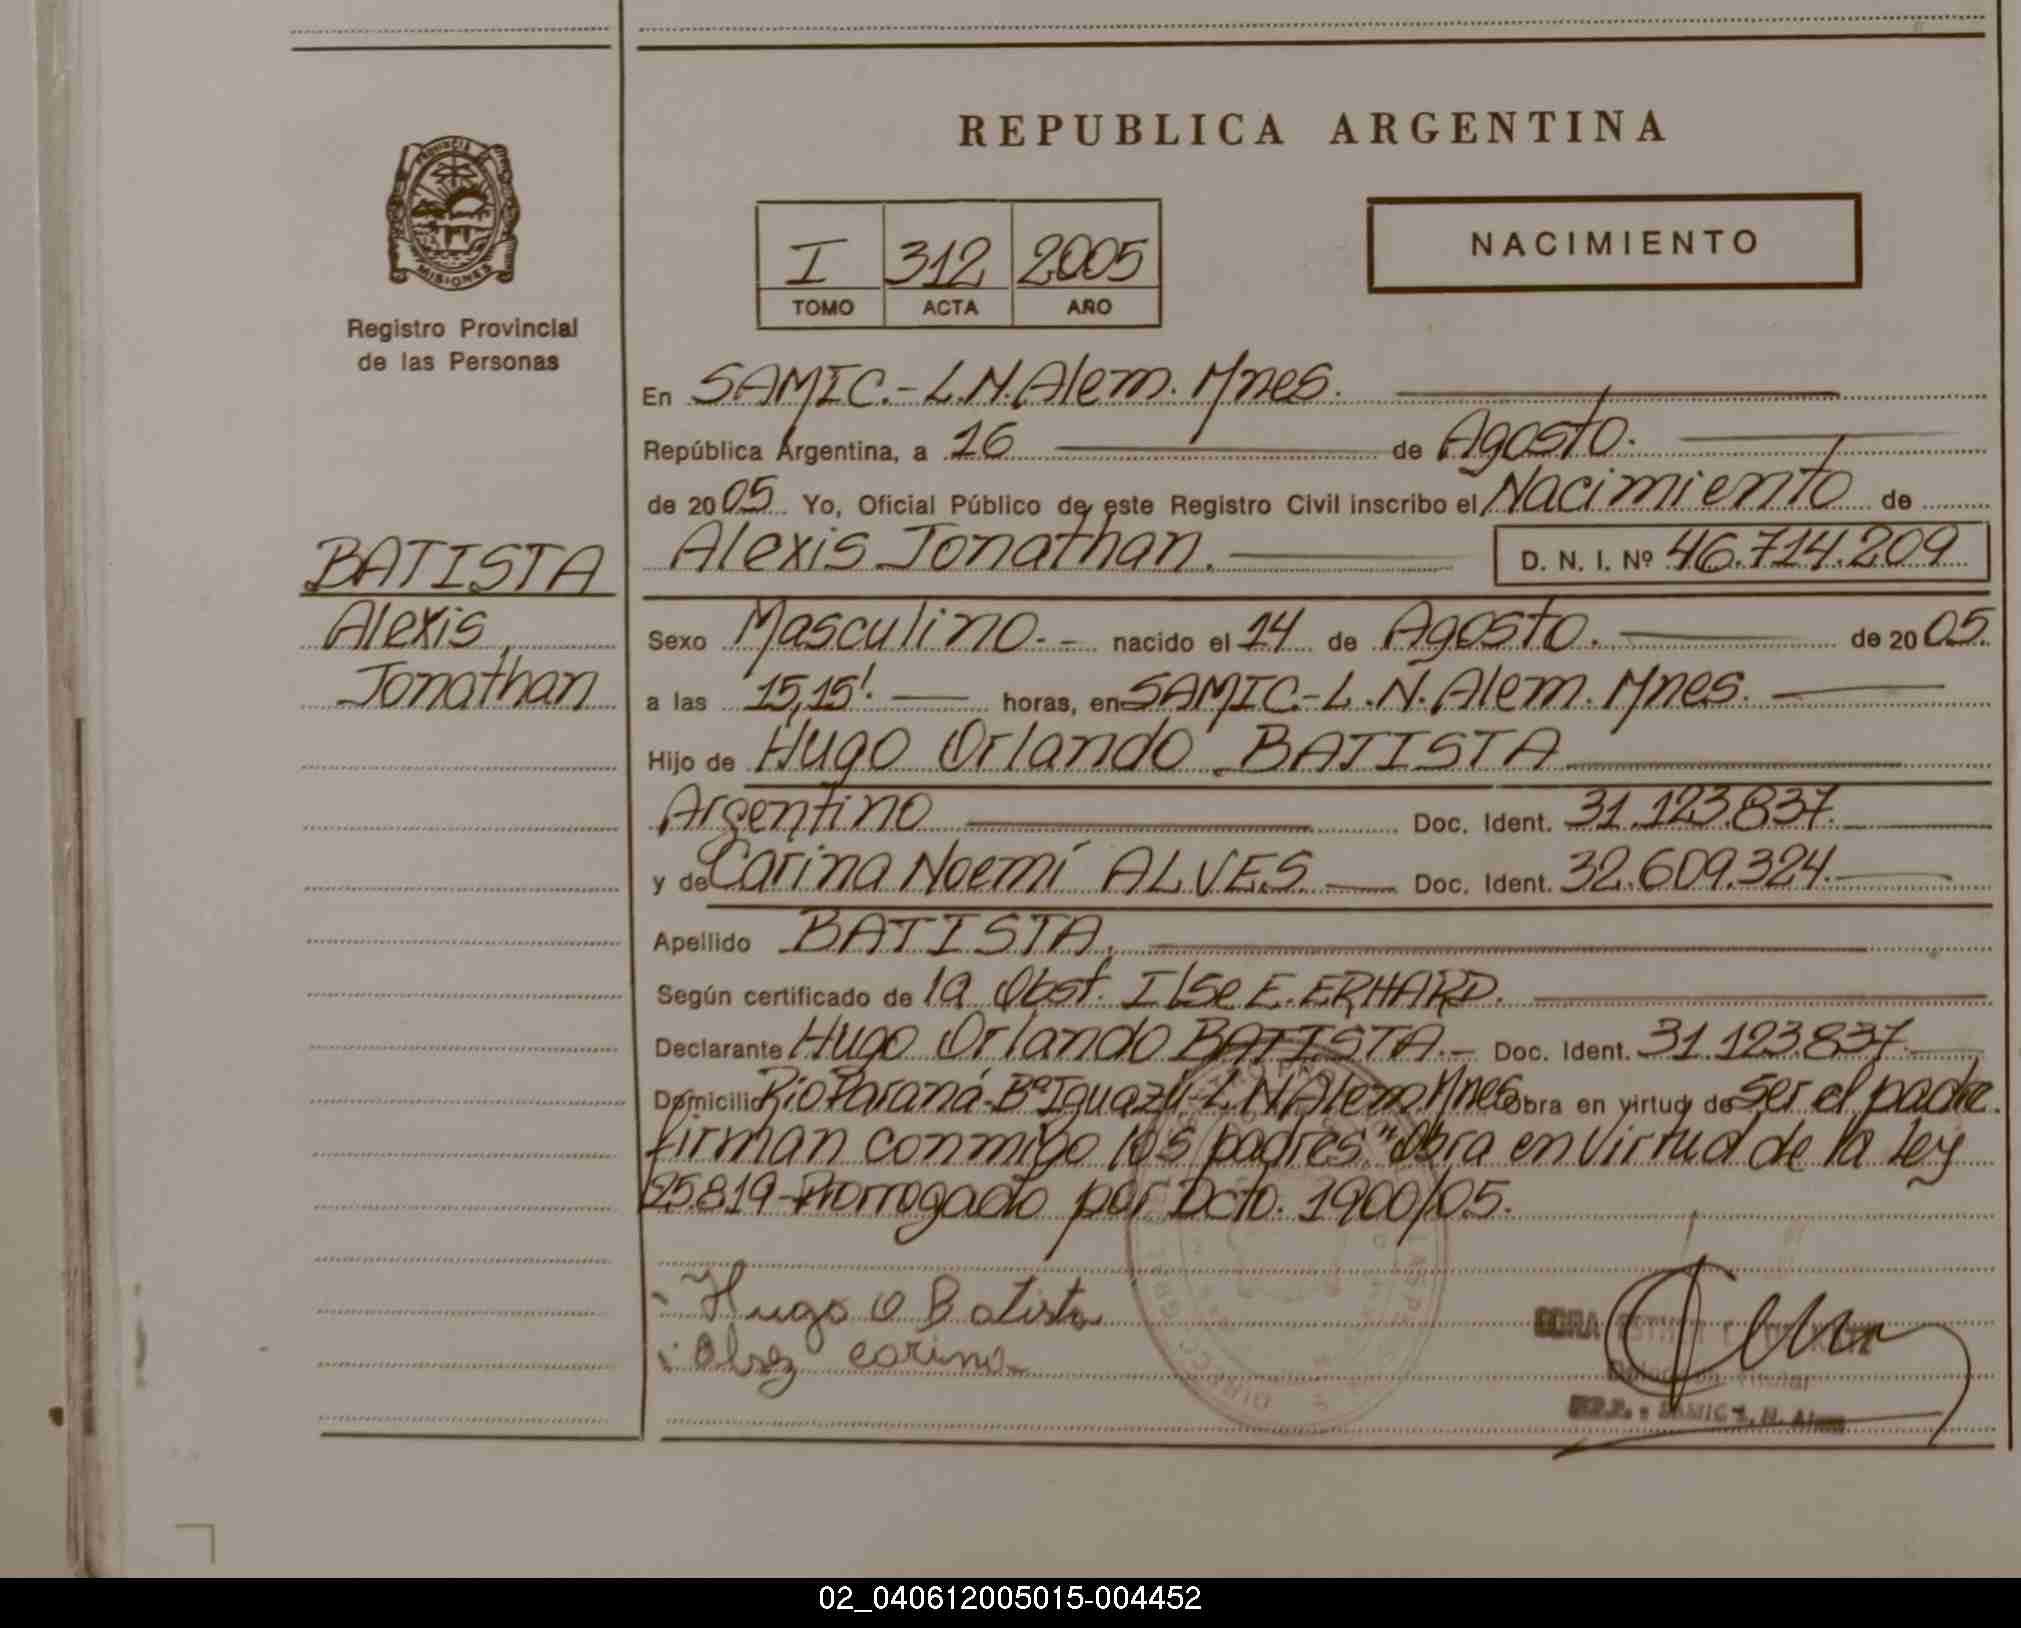 REPUBLICA ARGENTINA
PROVINCIA DE
MISIONES
Registro Provincial
de las Personas
I 312 2005
TOMO ACTA AÑO
NACIMIENTO
En SAMIC.-L.N.Alem. Mnes.
República Argentina, a 16 de Agosto.
de 2005 Yo, Oficial Público de este Registro Civil inscribo el Nacimiento de
Alexis Jonathan. D. N. I. Nº 46.714.209
BATISTA
Alexis
Jonathan
Sexo Masculino.- nacido el 14 de Agosto. de 2005.
a las 15,15'. horas, en SAMIC.-L.N.Alem. Mnes.
Hijo de Hugo Orlando BATISTA
Argentino Doc. Ident. 31.123.837.
y de Carina Noemí ALVES Doc. Ident. 32.609.324.
Apellido BATISTA.
Según certificado de la Obst. Ilse E. ERHARD.
Declarante Hugo Orlando BATISTA.- Doc. Ident. 31.123.837.
Domicilio Rio Paraná-Bº Iguazú-L.N.Alem.Mnes. Obra en virtud de ser el padre.
firman conmigo los padres." Obra en virtud de la ley
25.819-Prorrogado por Dcto. 1900/05.
Hugo O Batista
Carina
S.L.N. Alem
02_040612005015-004452